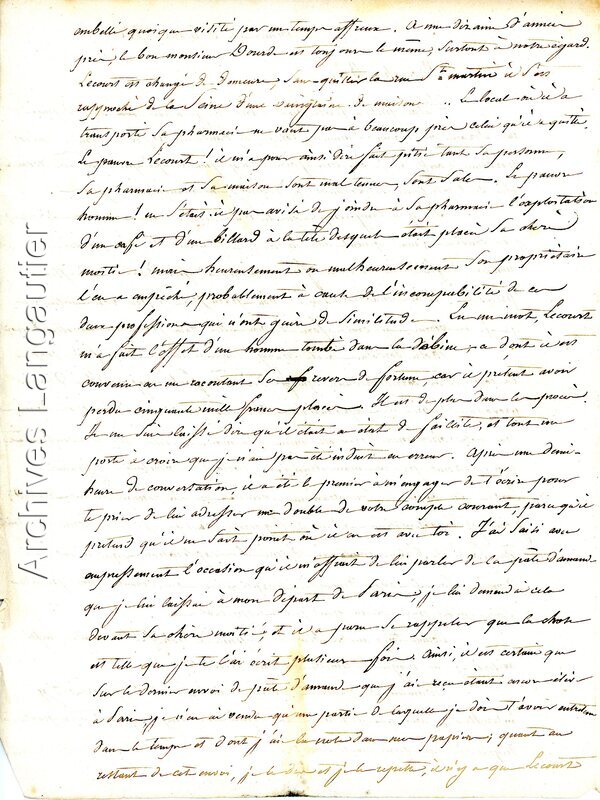 embellé quoique visité par un temps affreux. A une dizaine d'années
près, le bon monsieur Dourde est toujours le même, surtout à notre égard.
Lecourt est changé de demeure, sans quitter la rue St. martin il s'est
rapproché de la Seine d'une vingtaine de maisons .. Le local où il a
transporté sa pharmacie ne vaut pas à beaucoup près celui qu'il a quitté.
Le pauvre Lecourt ! il m'a pour ainsi dire fait pitié tant sa personne,
sa pharmacie et sa maison sont mal tenues, sont sales. Le pauvre
homme ! ne s'était-il pas avisé de joindre à sa pharmacie l'exploitation
d'un café et d'un billard à la tête desquels était placée sa chère
moitié ! mais heureusement ou malheureusement son propriétaire
l'en a empêché, probablement à cause de l'incompatibilité de ces
deux professions qui n'ont guère de similitude. En un mot, Lecourt
m'a fait l'effet d'un homme tombé dans la débine, ce dont il est
convenu en me racontant ses revers de fortune, car il prétend avoir
perdu cinquante mille francs placés. Il est de plus dans les procès.
Je me suis laissé dire qu'il était au-dessous de faillite, et tout me
porte à croire que je n'ai pas été induit en erreur. Après une demi-
heure de conversation, il a été le premier à m'engager de t'écrire pour
te prier de lui adresser un double de votre compte courant, parce qu'il
prétend qu'il ne sait point où il en est avec toi. J'ai saisi avec
empressement l'occasion qu'il m'offrait de lui parler de la pâte d'amande
que je lui laissai à mon départ de Paris, je lui demandai cela
devant sa chère moitié, et il a paru se rappeler que la chose
est telle que je te l'ai écrit plusieurs fois. Ainsi, il est certain que
sur le dernier envoi de pâte d'amande que j'ai reçu étant encore élève
à Paris, je n'en ai vendu qu'une partie de laquelle je dois t'avoir entretenu
dans le temps et dont j'ai la note dans mes papiers ; quant au
restant de cet envoi, je le dis et je le répète, il n'y a que Lecourt
Archives Langautier